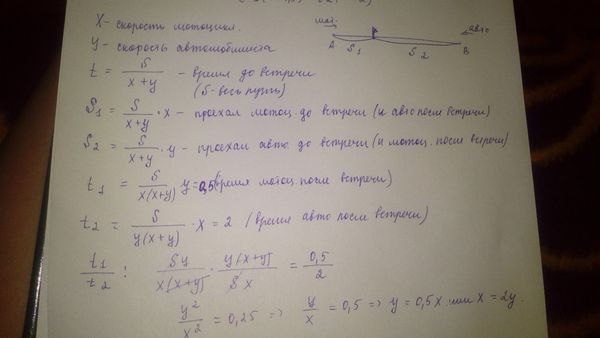 X - скорость мотоцикл.
У - скорость автомобилиста
мот. авто
A S₁ S₂ B
t = S/(x+y) - время до встречи
(S - весь путь)
S₁ = S/(x+y) · x - проехал мотоц. до встречи (и авто после встречи)
S₂ = S/(x+y) · y - проехал авто. до встречи (и мотоц. после встречи)
t₁ = S/(x(x+y)) y = 0,5 (время мотоц. после встречи)
t₂ = S/(y(x+y)) · x = 2 (время авто после встречи)
t₁/t₂ : Sy/(x(x+y)) · y(x+y)/(Sx) = 0,5/2
y²/x² = 0,25 => y/x = 0,5 => y = 0,5x или x = 2y.